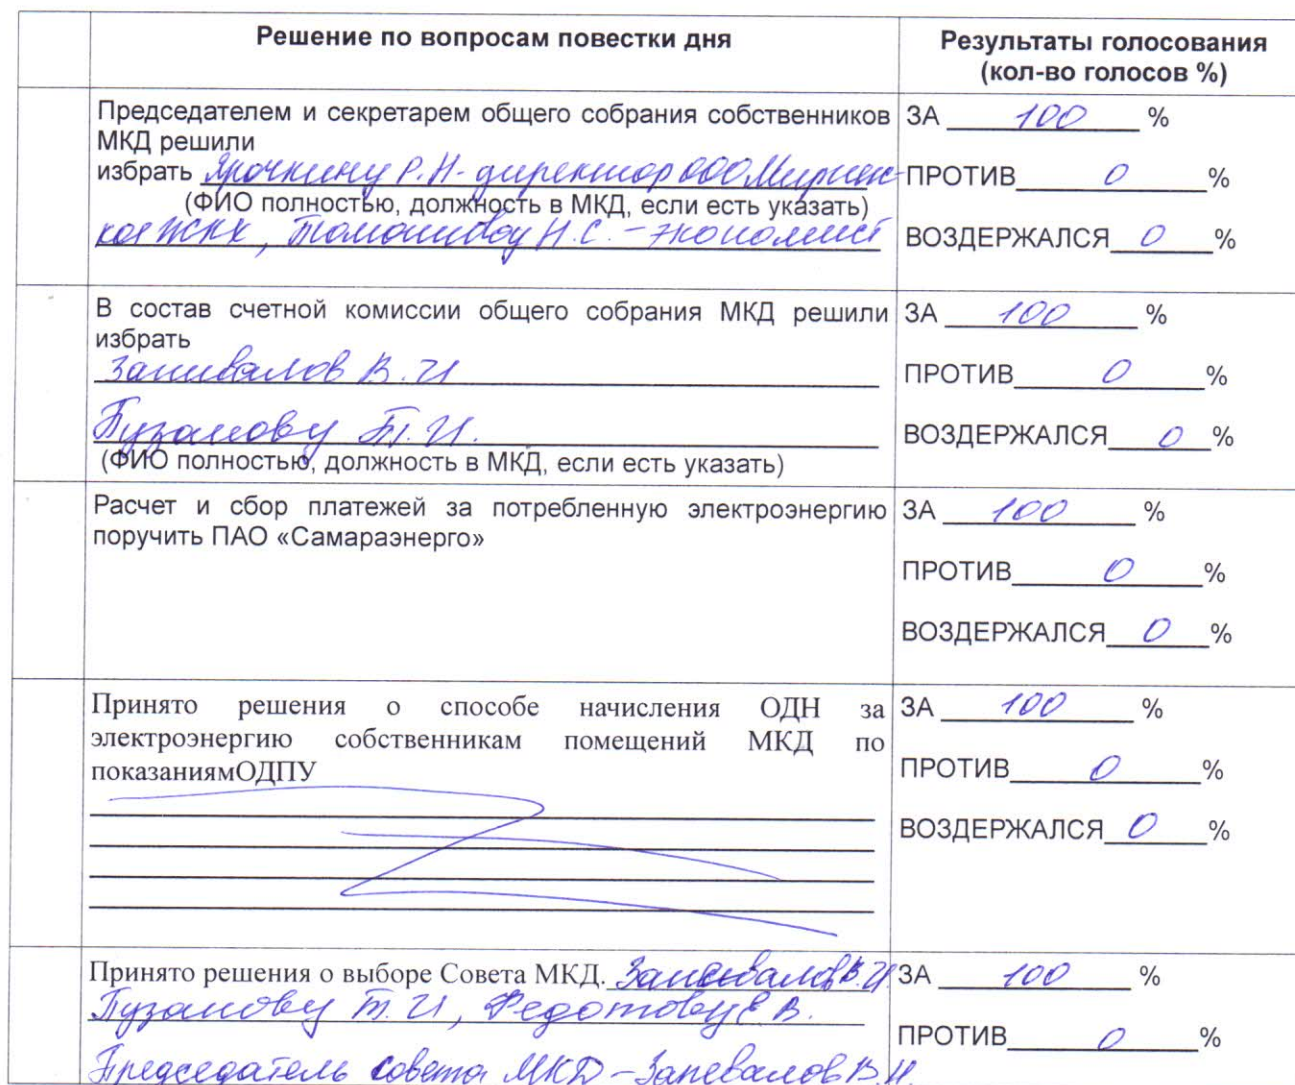 Решение по вопросам повестки дня
Результаты голосования
(кол-во голосов %)
Председателем и секретарем общего собрания собственников
МКД решили
избрать Ярочкину Р.Н- директор ООО Мирнен-
(ФИО полностью, должность в МКД, если есть указать)
кое ЖКХ, Томашову Н.С. - экономист
ЗА 100 %
ПРОТИВ 0 %
ВОЗДЕРЖАЛСЯ 0 %
В состав счетной комиссии общего собрания МКД решили
избрать
Запивалов В.И
Пузанову Т.И.
(ФИО полностью, должность в МКД, если есть указать)
ЗА 100 %
ПРОТИВ 0 %
ВОЗДЕРЖАЛСЯ 0 %
Расчет и сбор платежей за потребленную электроэнергию
поручить ПАО «Самараэнерго»
ЗА 100 %
ПРОТИВ 0 %
ВОЗДЕРЖАЛСЯ 0 %
Принято решения о способе начисления ОДН за
электроэнергию собственникам помещений МКД по
показаниямОДПУ
ЗА 100 %
ПРОТИВ 0 %
ВОЗДЕРЖАЛСЯ 0 %
Принято решения о выборе Совета МКД. Запевалов В.И
Пузанову Т.И, Федотову Е В.
Председатель совета МКД - Запевалов В.И.
ЗА 100 %
ПРОТИВ 0 %